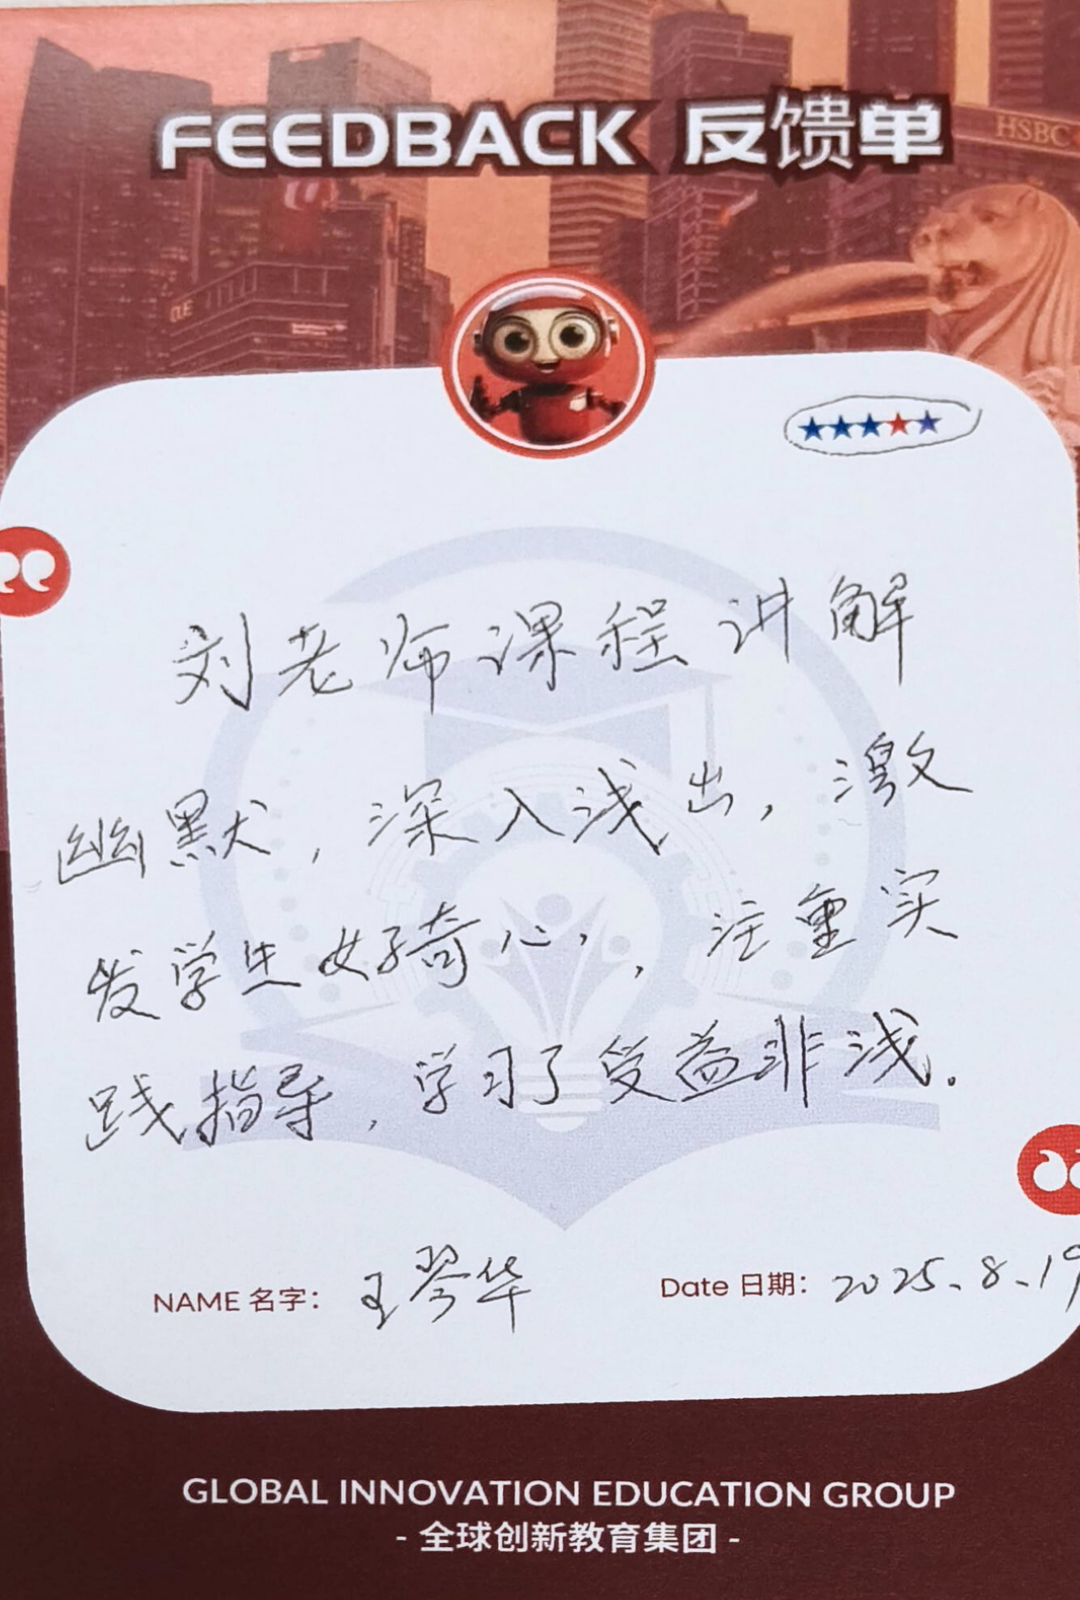 FEEDBACK 反馈单
HSBC
刘老师课程讲解
幽默，深入浅出，激
发学生好奇心，注重实
践指导，学习了受益非浅.
NAME 名字： 王琴华
Date 日期： 2025.8.19
GLOBAL INNOVATION EDUCATION GROUP
- 全球创新教育集团 -